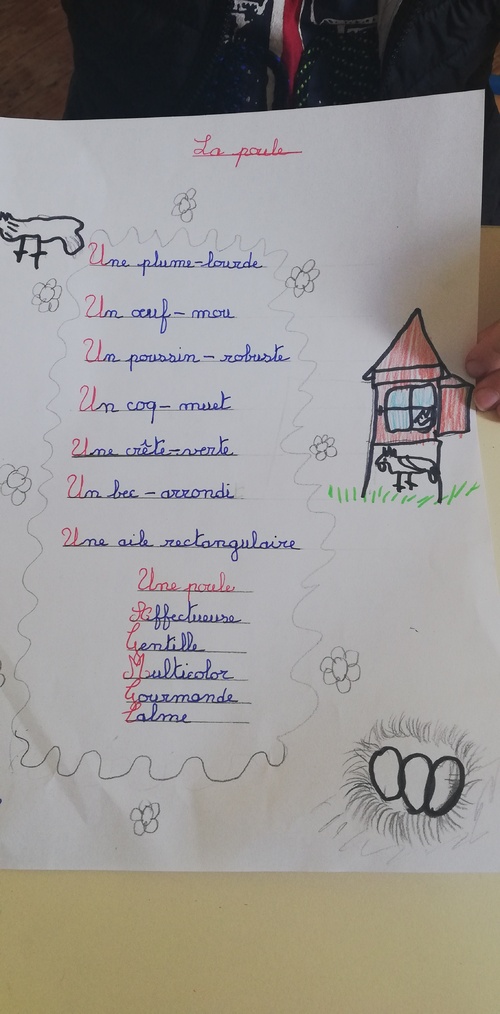 La poule
Une plume-lourde
Un œuf - mou
Un poussin - robuste
Un coq - muet
Une crête-verte
Un bec - arrondi
Une aile rectangulaire
Une poule
Affectueuse
Gentille
Multicolor
Gourmande
Calme